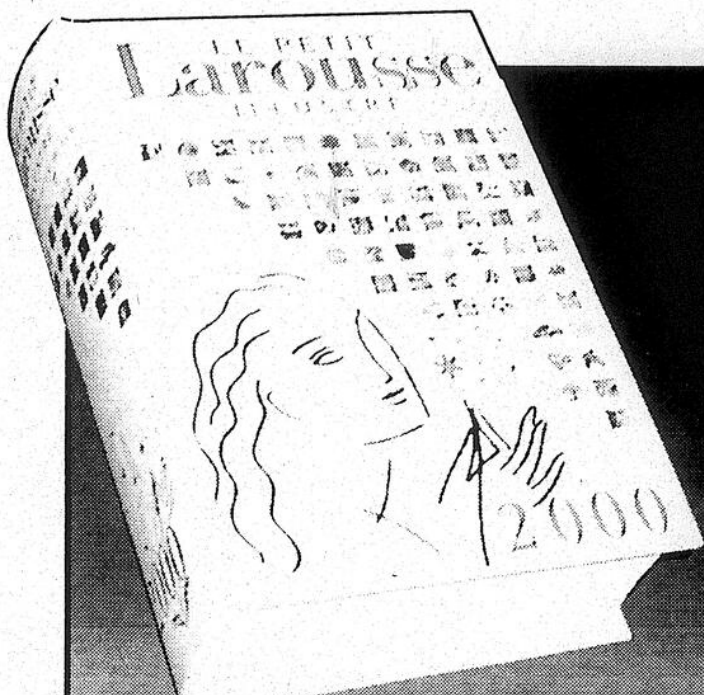 LE PETIT
Larousse
ILLUSTRÉ
2000